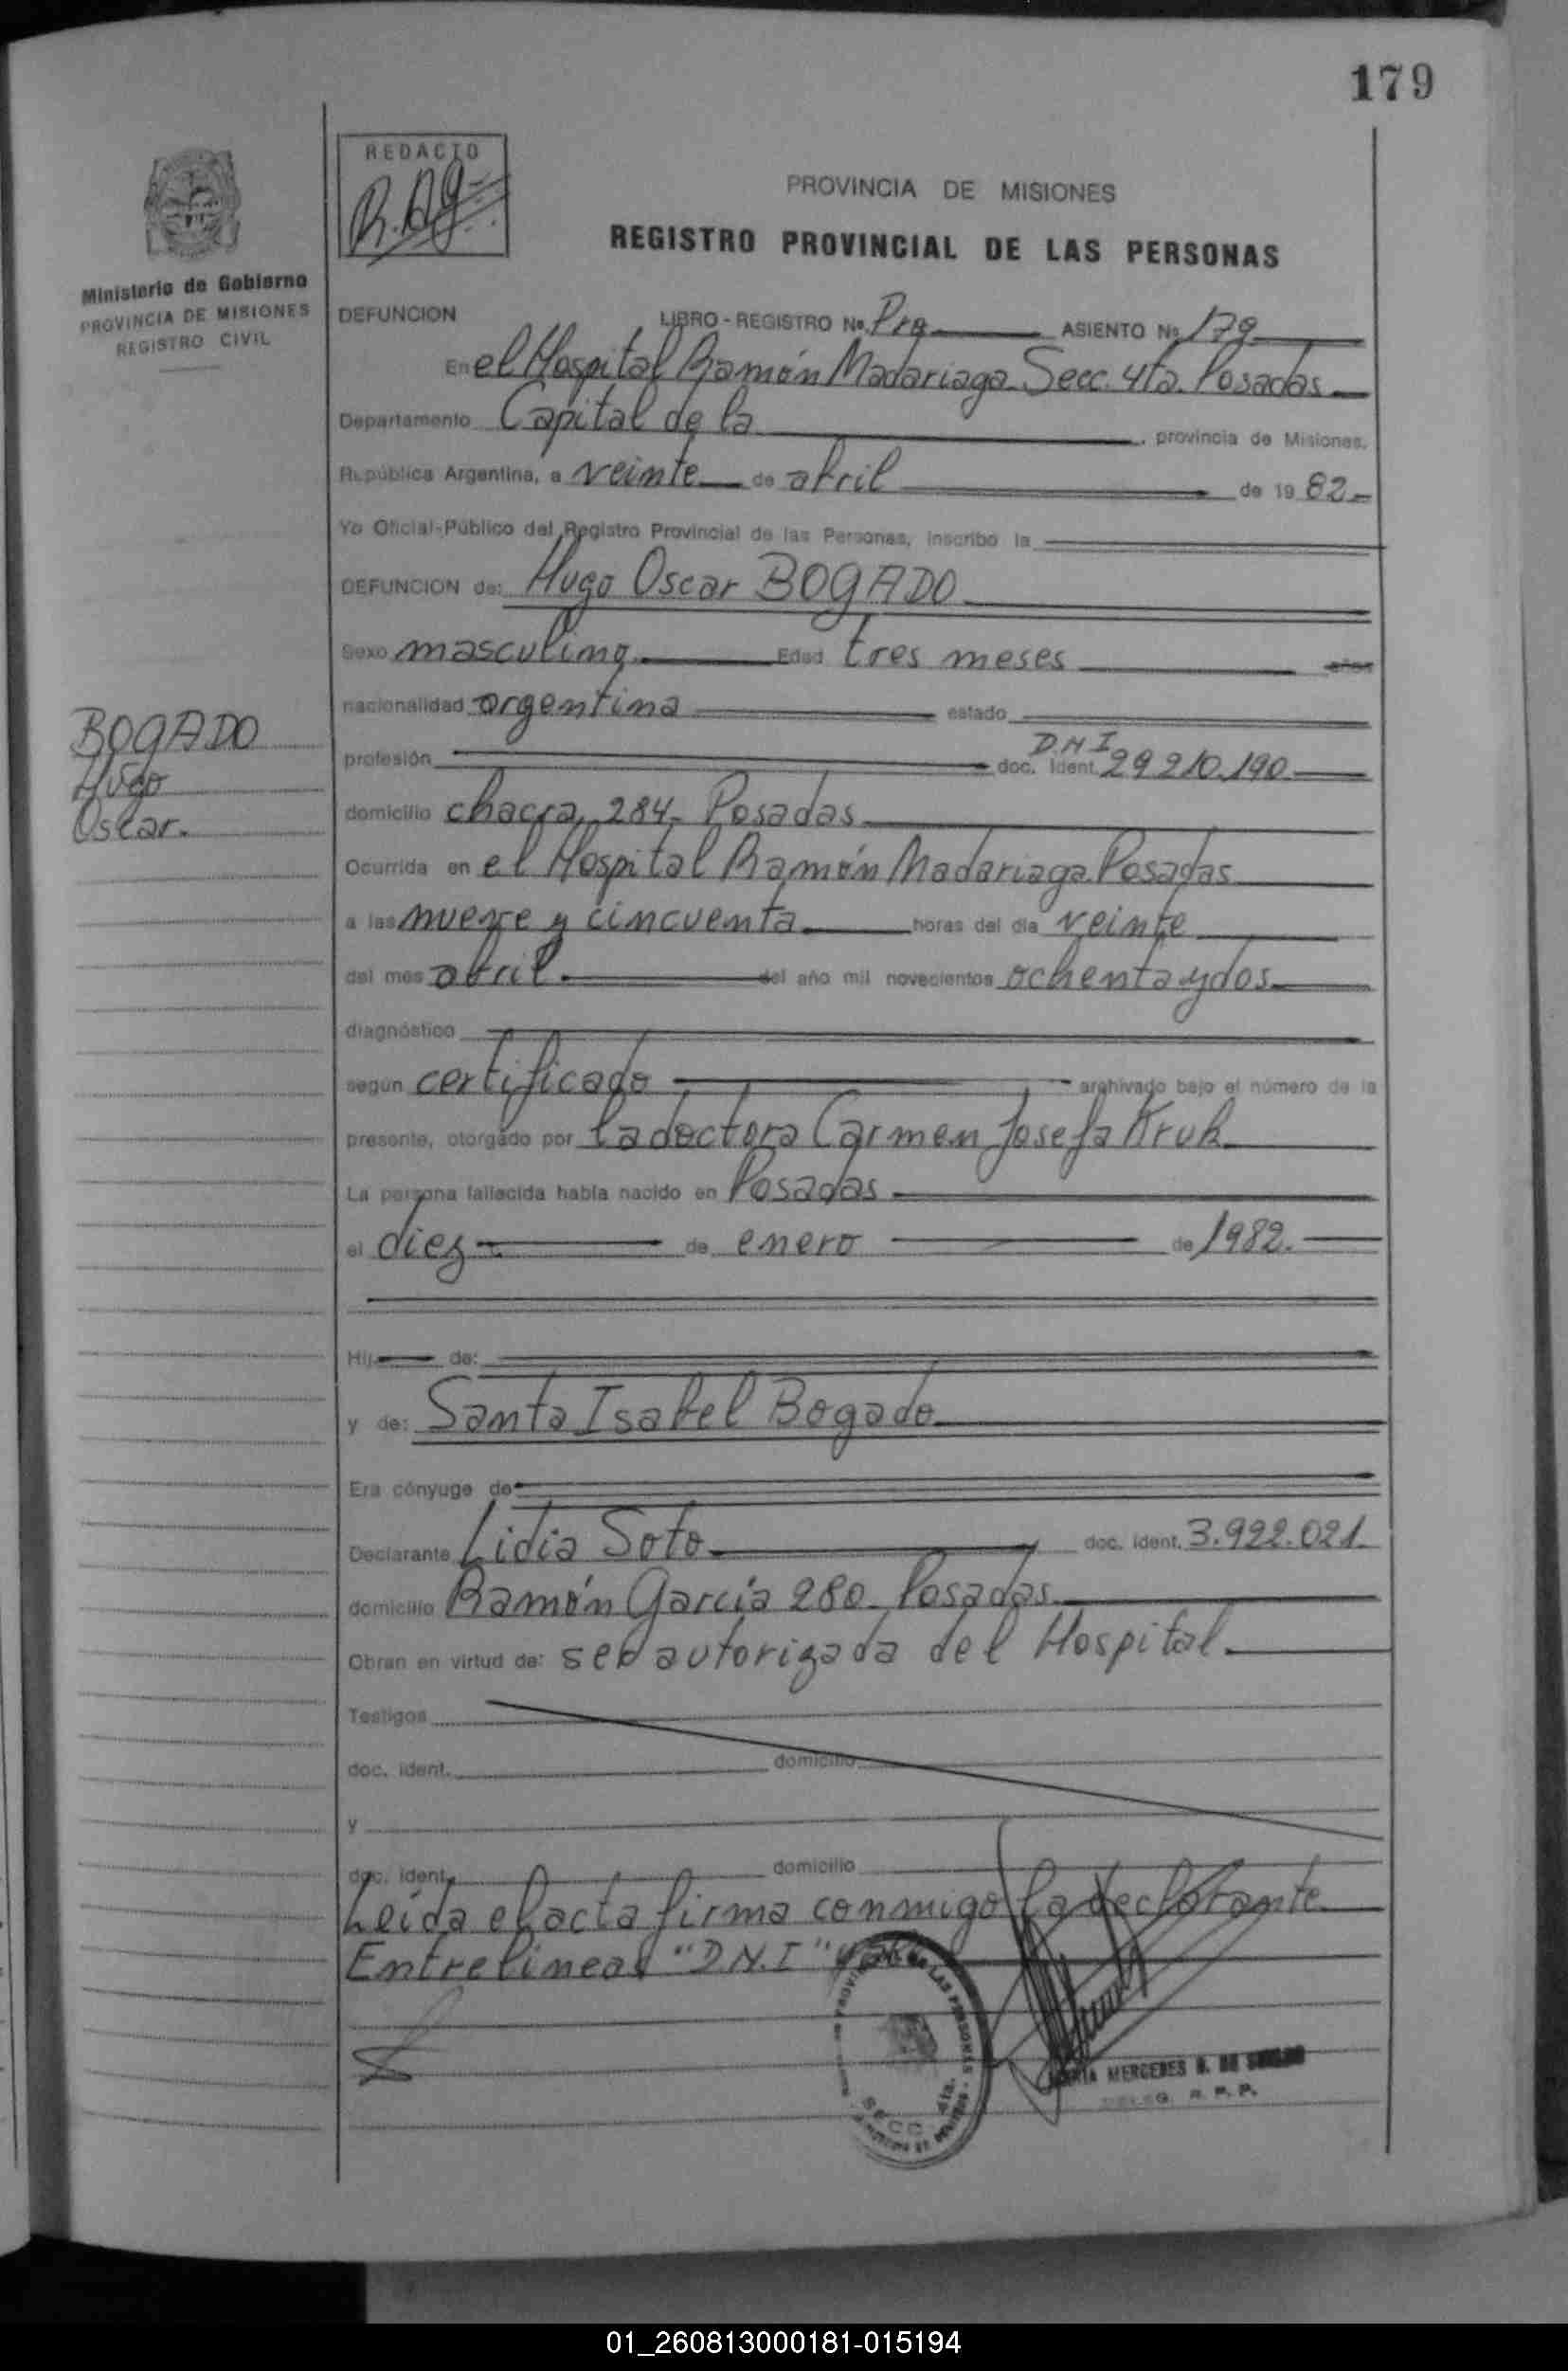 179
REDACTO
PROVINCIA DE MISIONES
REGISTRO PROVINCIAL DE LAS PERSONAS
Ministerio de Gobierno
PROVINCIA DE MISIONES
REGISTRO CIVIL
DEFUNCION LIBRO - REGISTRO No. ASIENTO No 179
En el Hospital Ramón Madariaga Secc. 4ta. Posadas
Departamento Capital de la , provincia de Misiones,
República Argentina, a veinte de abril de 19 82
Yo Oficial-Público del Registro Provincial de las Personas, inscribo la
DEFUNCION de: Hugo Oscar BOGADO
Sexo masculino Edad tres meses años
nacionalidad argentina estado
BOGADO
Hugo
Oscar.
D.N.I
profesión doc. Ident. 29 210.190
domicilio chacra 284- Posadas
Ocurrida en el Hospital Ramón Madariaga Posadas
a las nueve y cincuenta horas del día veinte
del mes abril del año mil novecientos ochenta y dos
diagnóstico
según certificado archivado bajo el número de la
presente, otorgado por la doctora Carmen Josefa Kruk
La persona fallecida había nacido en Posadas
el diez de enero de 1982.
Hij de:
y de: Santa Isabel Bogado
Era cónyuge de
Declarante Lidia Soto doc. ident. 3.922.021.
domicilio Ramón García 280- Posadas
Obran en virtud de: ser autorizada del Hospital
Testigos
doc. ident. domicilio
y
doc. ident. domicilio
Leída el acta firma conmigo la declarante
Entrelineas "D.N.I" vale
SECC. 4ta.
MARIA MERCEDES
R. P. P.
01_260813000181-015194